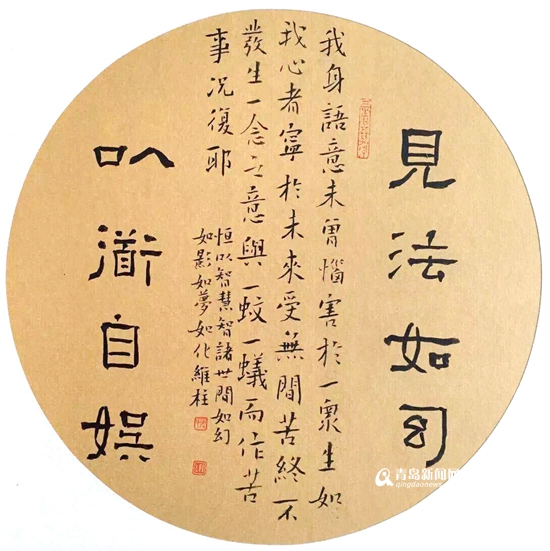 見法如幻
我身語意未曾惱害於一衆生如
我心者寧於未來受無間苦終不
發生一念之意與一蚊一蟻而作苦
事況復耶
恒以智慧智諸世間如幻
如影如夢如化維柱
以衜自娯
青岛新闻网
qingdaonews.com